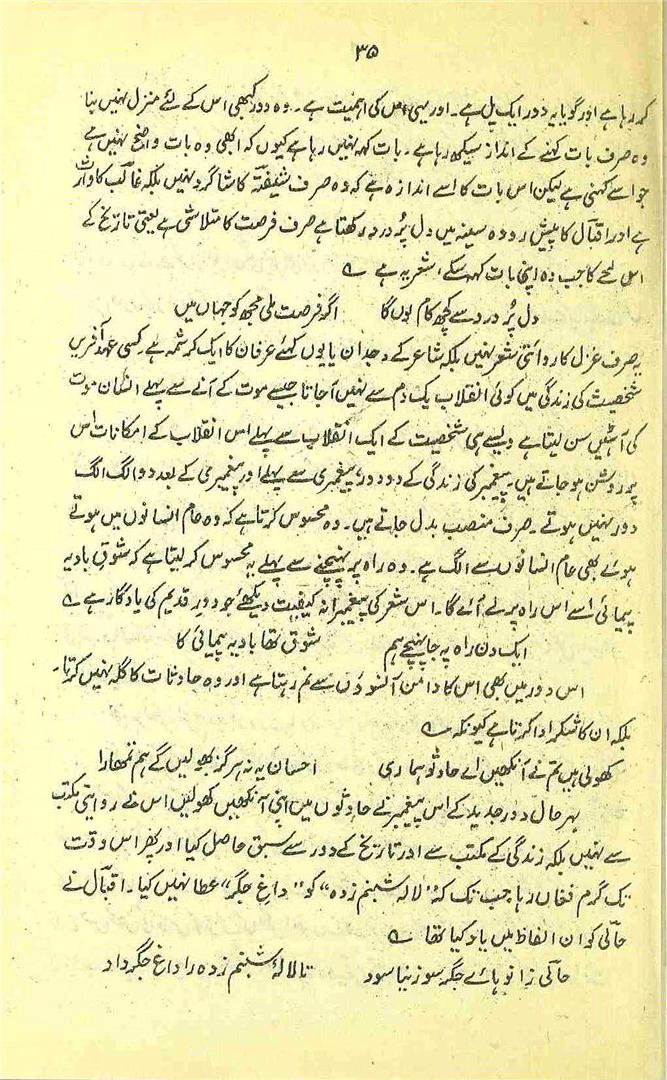 ۳۵
کر رہا ہے اور گویا یہ دور ایک پل ہے۔ اور یہی اس کی اہمیت ہے۔ وہ دور کبھی اس کے لئے منزل نہیں بنا
وہ صرف بات کہنے کے انداز سیکھ رہا ہے۔ بات کہہ نہیں رہا ہے کیوں کہ ابھی وہ بات واضح نہیں ہے
جو اسے کہنی ہے لیکن اس بات کا اسے اندازہ ہے کہ وہ صرف شیفتہ کا شاگرد نہیں بلکہ غالب کا وارث
ہے اور اقبال کا پیش رو وہ سینہ میں دل پُر درد رکھتا ہے صرف فرصت کا متلاشی ہے یعنی تاریخ کے
اس لمحے کا جب وہ اپنی بات کہہ سکے، شعر یہ ہے ؎
دل پُر درد سے کچھ کام لوں گا اگر فرصت ملی مجھ کو جہاں میں
یہ صرف غزل کا روائتی شعر نہیں بلکہ شاعر کے وجدان یا یوں کہئے عرفان کا ایک کرشمہ ہے۔ کسی عہد آفریں
شخصیت کی زندگی میں کوئی انقلاب یک دم سے نہیں آ جاتا جیسے موت کے آنے سے پہلے انسان موت
کی آہٹیں سن لیتا ہے ویسے ہی شخصیت کے ایک انقلاب سے پہلے اس انقلاب کے امکانات اس
پر روشن ہو جاتے ہیں۔ پیغمبر کی زندگی کے دو دور، پیغمبری سے پہلے اور پیغمبری کے بعد دو الگ الگ
دور نہیں ہوتے۔ صرف منصب بدل جاتے ہیں۔ وہ محسوس کرتا ہے کہ وہ عام انسانوں میں ہوتے
ہوئے بھی عام انسانوں سے الگ ہے۔ وہ راہ پر پہنچنے سے پہلے یہ محسوس کر لیتا ہے کہ شوق بادیہ
پیمائی اسے اس راہ پر لے آئے گا۔ اس شعر کی پیغمبرانہ کیفیت دیکھئے جو دورِ قدیم کی یادگار ہے ؎
ایک دن راہ پہ جا پہنچے ہم شوق تھا بادیہ پیمائی کا
اس دور میں بھی اس کا دامن آنسوؤں سے نم رہتا ہے اور وہ حادثات کا گلہ نہیں کرتا۔
بلکہ ان کا شکر ادا کرتا ہے کیونکہ ؎
کھولی ہیں تم نے آنکھیں اے حادثو ہماری احسان یہ نہ ہرگز بھولیں گے ہم تمھارا
بہر حال دورِ جدید کے اس پیغمبر نے حادثوں میں اپنی آنکھیں کھولیں اس نے روایتی مکتب
سے نہیں بلکہ زندگی کے مکتب سے اور تاریخ کے دور سے سبق حاصل کیا اور پھر اس وقت
تک گرم فغاں رہا جب تک کہ "لالہ شبنم زدہ" کو "داغِ جگر" عطا نہیں کیا۔ اقبال نے
حالی کو ان الفاظ میں یاد کیا تھا ؎
حالی ز نوا ہائے جگر سوز نیاسود تا لالۂ شبنم زدہ را داغِ جگر داد